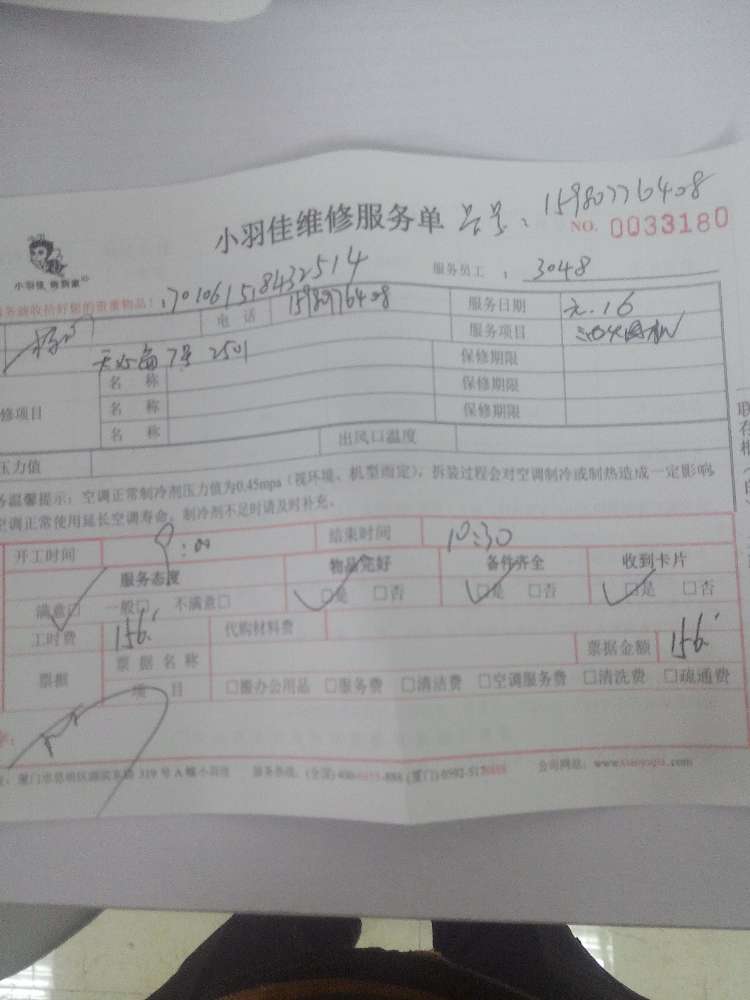 小羽佳维修服务单 号: 15980776408
NO. 0033180
小羽佳
服务员工: 3048
收拾好您的贵重物品!: 7010615184325 14
电话 15980776408 服务日期 16
7号 2501 服务项目
修项目 名称 保修期限
名称 保修期限
名称 保修期限
压力值 出风口温度
温馨提示: 空调正常制冷剂压力值为0.45mpa (视环境、机型而定), 拆装过程会对空调制冷或制热造成一定影响
空调正常使用延长空调寿命, 制冷剂不足时请及时补充。
开工时间 9:00 结束时间 10:30
服务态度 物品完好 备件齐全 收到卡片
满意□ 一般□ 不满意□ □是 □否 □是 □否 □是 □否
工时费 156. 代购材料费
票据 票据名称 票据金额 156.
项目 □搬办公用品 □服务费 □清洁费 □空调服务费 □清洗费 □疏通费
319号A幢小羽佳 服务热线: (全国) 400- -888 (厦门) 0592-517 公司网站: www.xiaoyujia.com